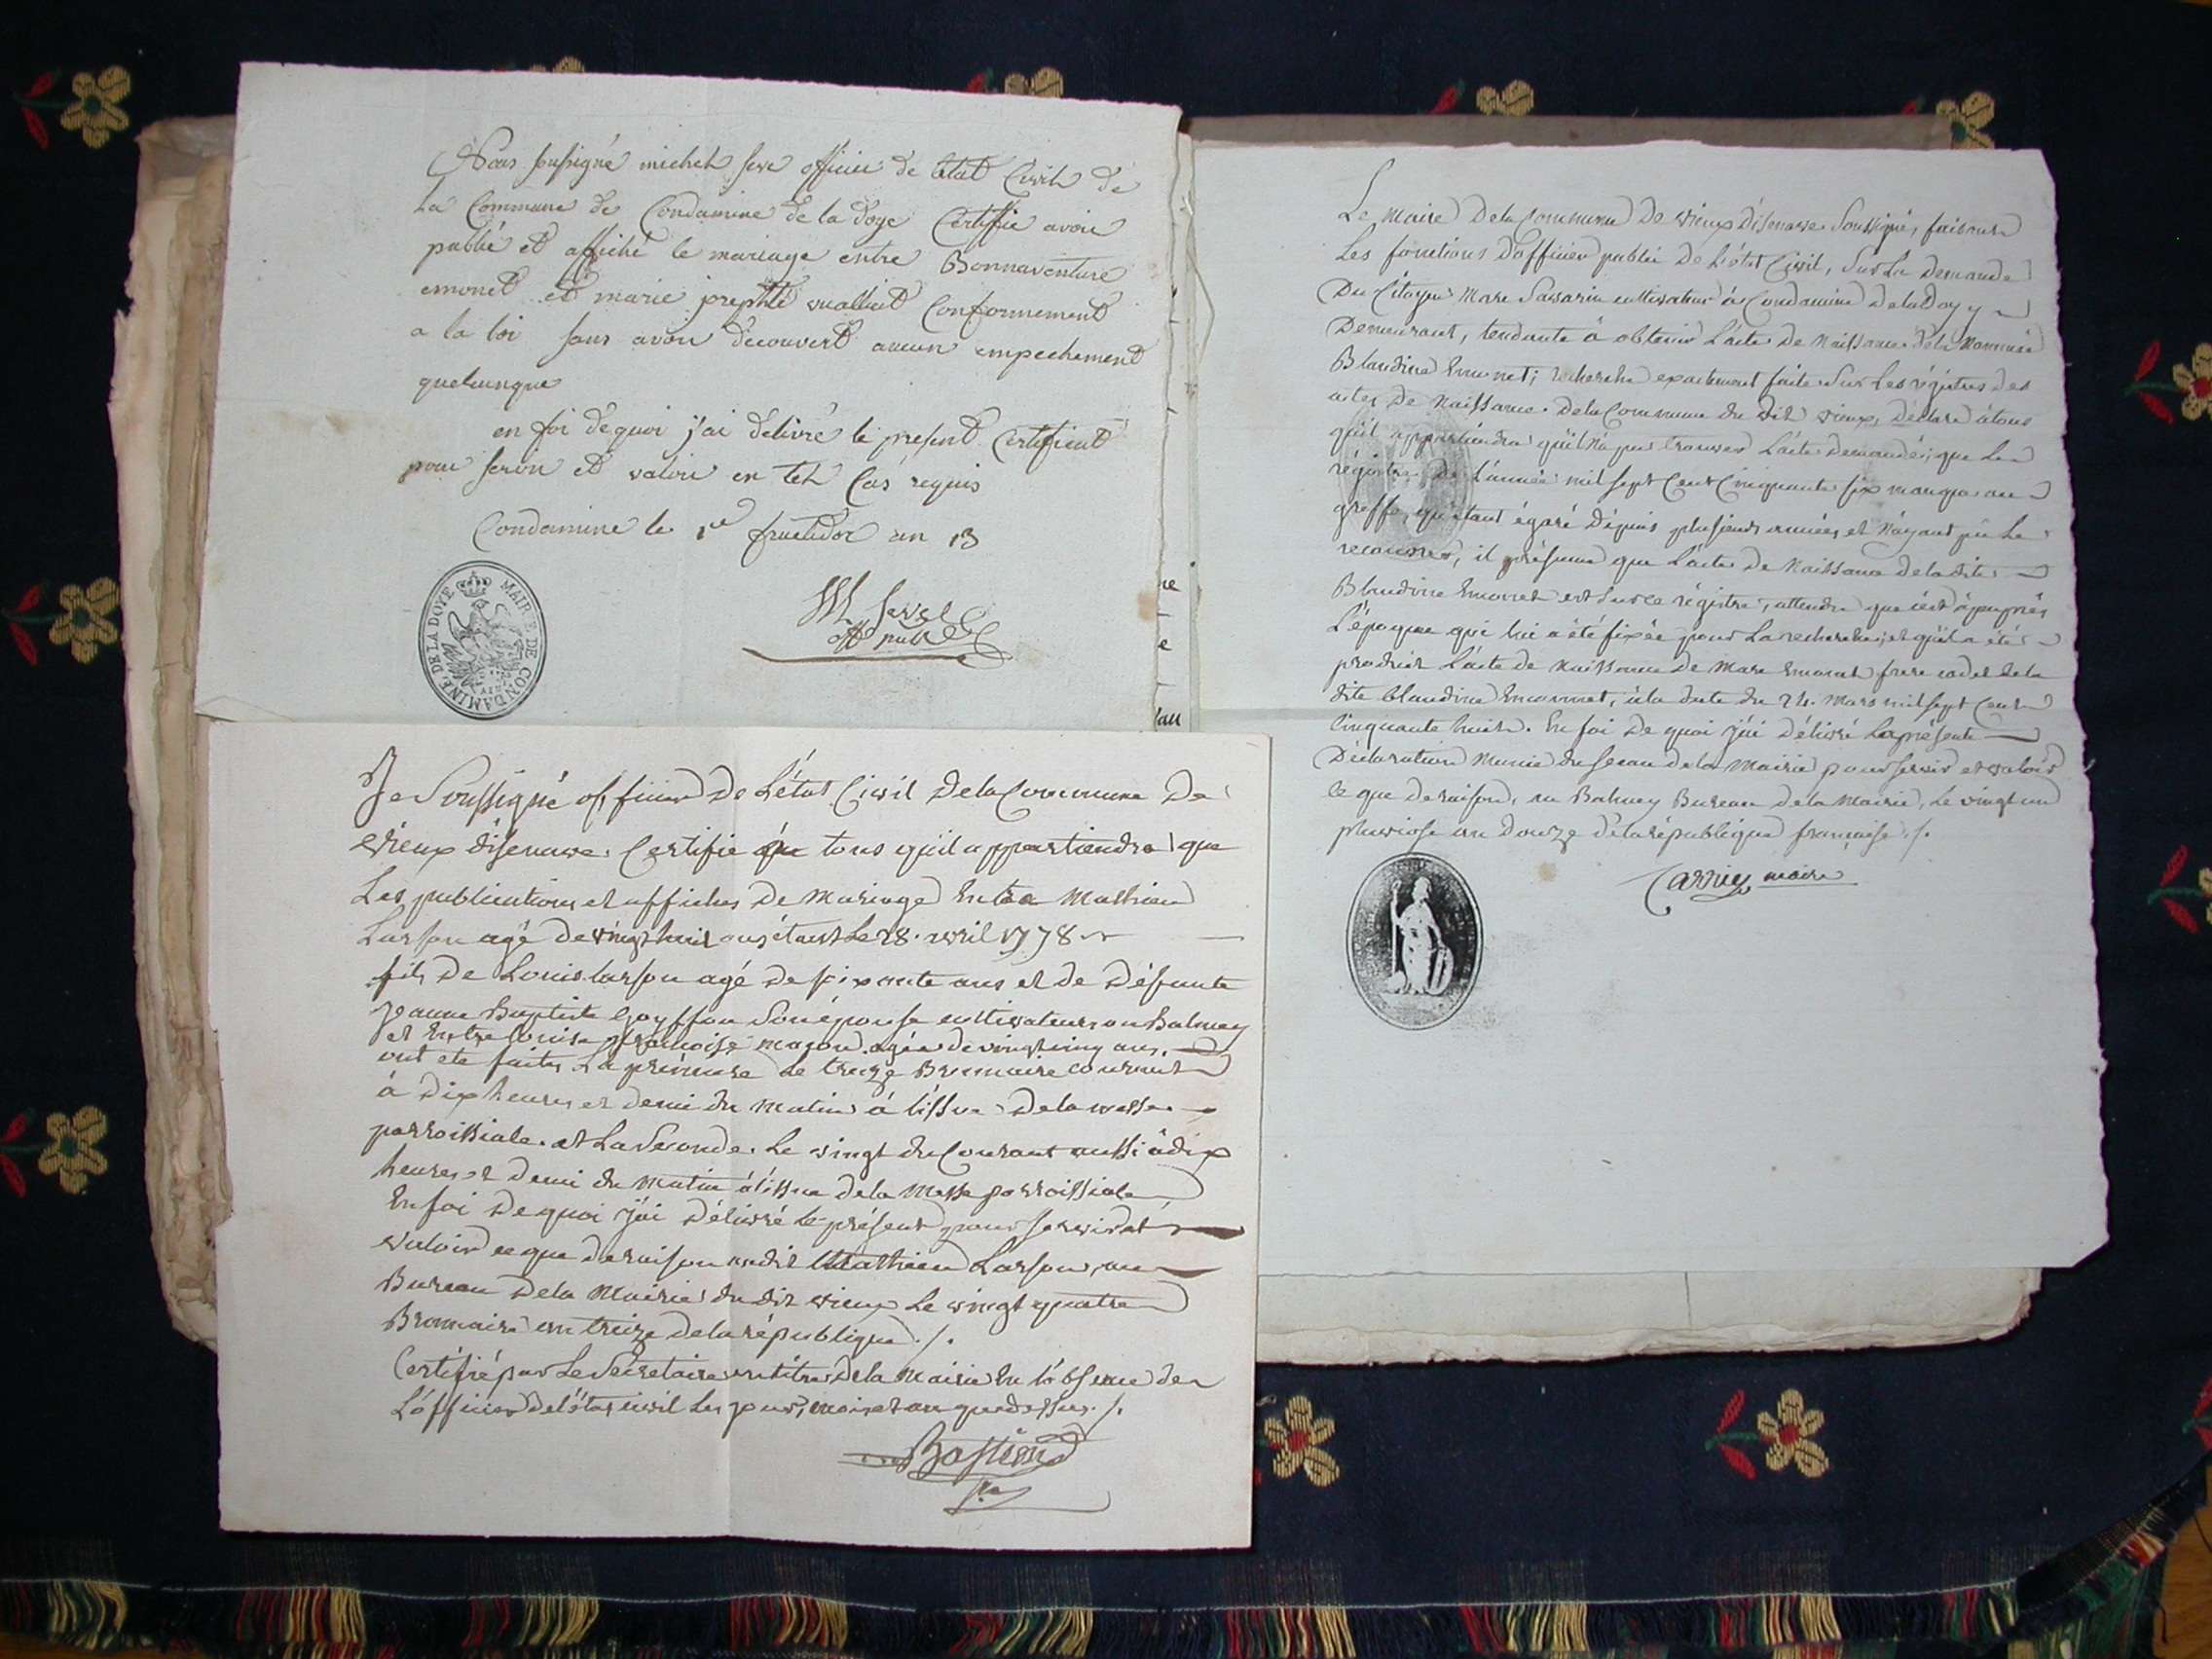 Nous soussigné michel seve officier de l'etat Civil de
La Commune de Condamine de la doye Certifie avoir
publié et affiché le mariage entre Bonnaventure
emonet et marie josephte vualliet Conformement
a la loi sans avoir decouvert aucun empechement
quelcunque
en foi de quoi j'ai delivré le present Certificat
pour servir et valoir en tel Cas requis
Condamine le 1er fructidor an 13
MAIRIE DE CONDAMINE DE LA DOYE
Je Soussigné officier De L'état Civil Dela Commune De
vieux disenave Certifie à tous qu'il appartiendra que
Les publications et affiches De Mariage Entre Mathieu
Larson agé de vingt huit ans étant Le 28 avril 1778
fils De Louis Larson agé De soixante ans et de Défunte
Jeanne Baptiste Goyffon Son épouse cultivateurs au Balmey
et Entre Louise françoise maçon agée de vingt cinq ans
ont été faites La première Le treize Brumaire courant
à dix heures et demi du matin à l'issue Dela messe
parroissiale et La Seconde Le vingt du Courant aussi à dix
heures et demi du matin à l'issue dela Messe parroissiale
En foi De quoi j'ai Délivré Le présent pour servir et
valoir ce que de raison audit Mathieu Larson, au
Bureau Dela Mairie du dit vieux Le vingt quatre
Brumaire an treize dela république ./.
Certifié par Le Secretaire en titre Dela Mairie En l'absence de
L'officier De l'état civil Les jour, mois et an que dessus ./.
Le Maire Dela Commune De vieux D'isenave Soussigné, faisant
Les fonctions D'officier public De L'état Civil, Sur La Demande
Du Citoyen Marc Savarin cultivateur à Condamine Dela Doy y
Demeurant, tendante à obtenir L'acte De Naissance Dela Nommée
Blandine Emonet; recherche exactement faite Sur Les régistres des
actes De Naissance Dela Commune du dit vieux, Déclare à tous
qu'il appartiendra qu'il n'a pu trouver L'acte Demandé; que Le
régistre De L'année mil sept Cent Cinquante six manque au
greffe, qu'étant égaré Dépuis plusieurs années et N'ayant pu Le
recouvrer, il présume que L'acte De Naissance Dela dite
Blandine Emonet est Sur ce régistre, attendu que c'est à peu près
L'époque qui lui a été fixée pour La recherche; et qu'il a été
produit L'acte De Naissance De Marc Emonet frere cadet dela
dite Blandine Emonnet, à la date du 24 Mars mil sept Cent
Cinquante huit. En foi De quoi j'ai Délivré La présente
Déclaration Munie du sceau dela Mairie pour servir et valoir
ce que de raison, au Balmey Bureau dela Mairie, Le vingt un
pluviose an Douze dela république française ./.
maire